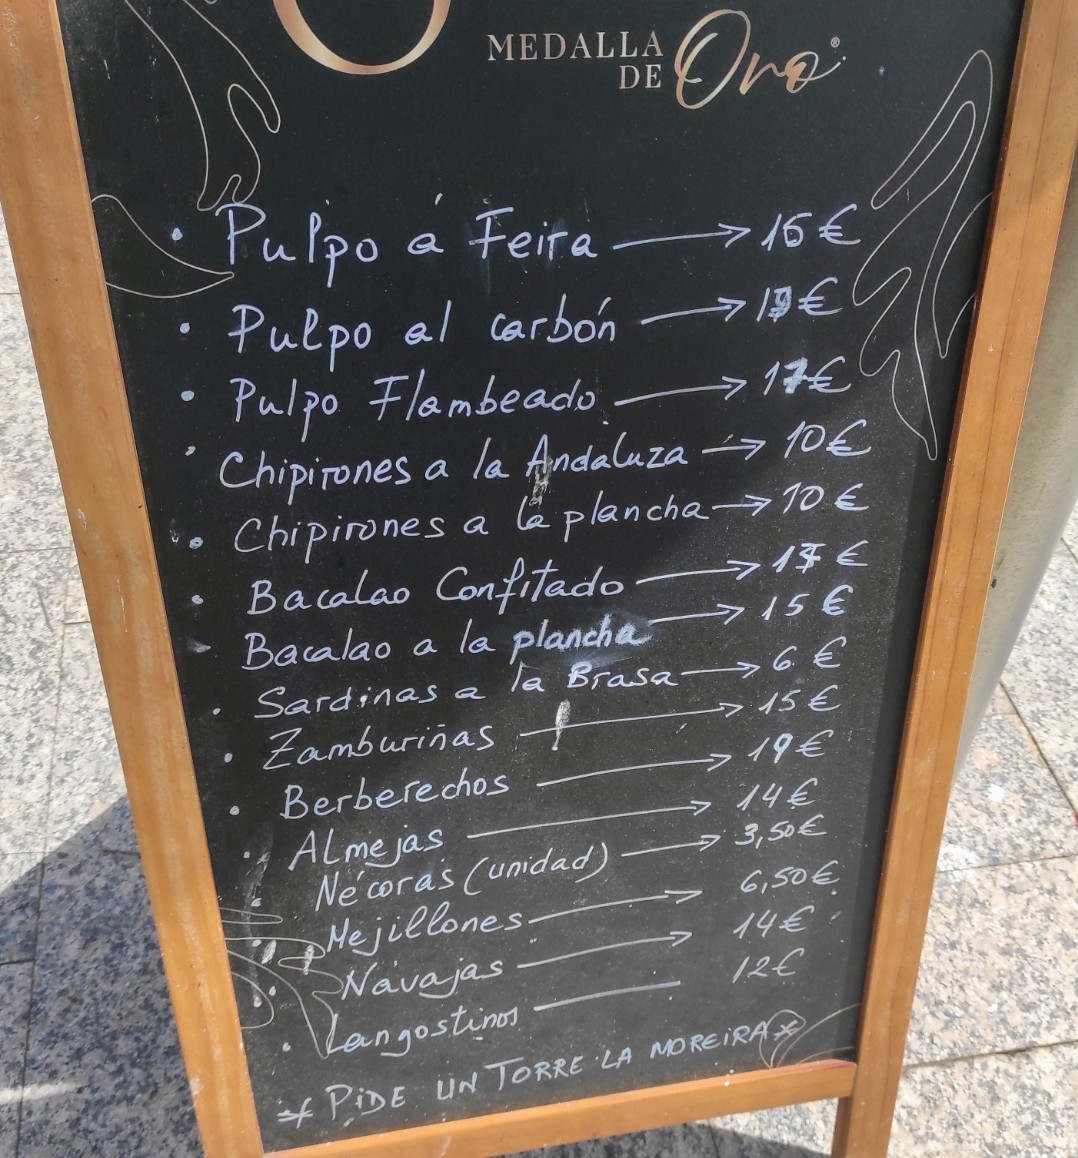 MEDALLA
DE Oro®
• Pulpo á Feira → 16 €
• Pulpo al carbón → €
• Pulpo Flambeado → 17€
• Chipirones a la Andaluza → 10€
• Chipirones a la plancha → 10 €
• Bacalao Confitado → €
• Bacalao a la plancha → 15 €
• Sardinas a la Brasa → 6 €
• Zamburiñas → 15 €
• Berberechos → 19€
• Almejas → 14€
• Nécoras (unidad) → 3,50€
• Mejillones → 6,50€
• Navajas → 14€
• Langostinos — 12€
* PIDE UN TORRE LA MOREIRA *